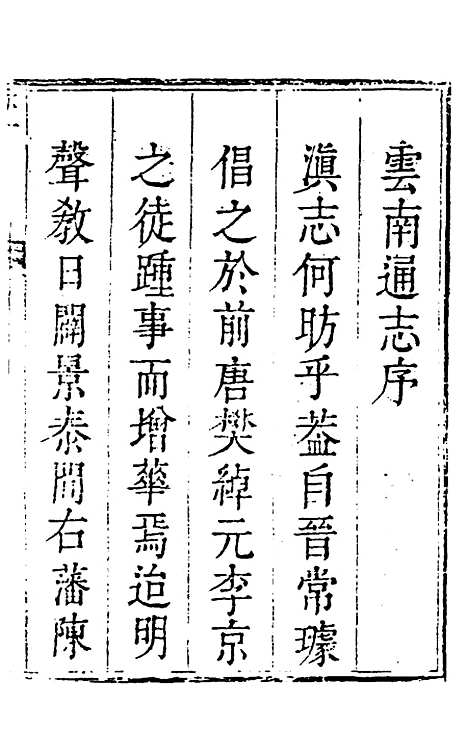 雲南通志序
滇志何昉乎葢自晉常璩
倡之於前唐樊綽元李京
之徒踵事而增華焉迨明
聲敎日闢景泰間右藩陳